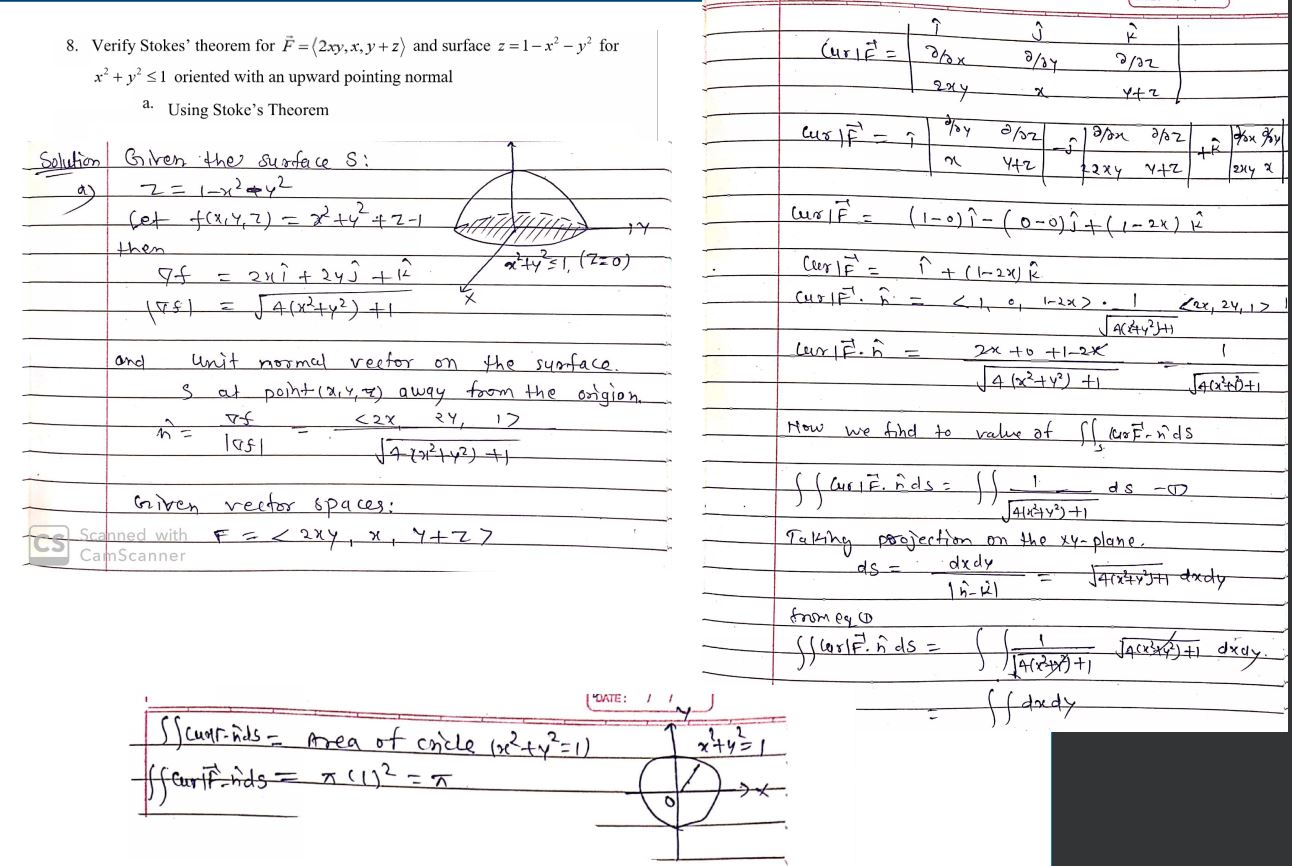 8. Verify Stokes' theorem for F⃗ = ⟨2xy, x, y + z⟩ and surface z = 1 − x² − y² for
x² + y² ≤ 1 oriented with an upward pointing normal
a. Using Stoke's Theorem
Solution Given the surface S:
a) z = 1-x²-y²
Let f(x,y,z) = x²+y²+z-1
then
∇f = 2xî + 2yĵ + k̂
|∇f| = √4(x²+y²)+1
Y
x²+y²=1, (z=0)
X
and unit normal vector on the surface.
S at point (x,y,z) away from the origion.
n̂ = ∇f / |∇f| = <2x, 2y, 1> / √4(x²+y²)+1
Given vector spaces:
F = <2xy, x, y+z>
CS Scanned with
CamScanner
Curl F⃗ = | î ĵ k̂ |
| ∂/∂x ∂/∂y ∂/∂z |
| 2xy x y+z |
Curl F⃗ = î | ∂/∂y ∂/∂z | - ĵ | ∂/∂x ∂/∂z | + k̂ | ∂/∂x ∂/∂y |
| x y+z | | 2xy y+z | | 2xy x |
Curl F⃗ = (1-0)î - (0-0)ĵ + (1-2x) k̂
Curl F⃗ = î + (1-2x) k̂
Curl F⃗. n̂ = <1, 0, 1-2x> . 1 / √4(x²+y²)+1 <2x, 2y, 1>
Curl F⃗. n̂ = 2x + 0 + 1-2x / √4(x²+y²)+1 = 1 / √4(x²+y²)+1
Now we find to value of ∬s curl F⃗. n̂ ds
∬ Curl F⃗. n̂ ds = ∬ 1 / √4(x²+y²)+1 ds -①
Taking projection on the xy-plane.
ds = dxdy / |n̂.k̂| = √4(x²+y²)+1 dxdy
from eq ①
∬ Curl F⃗. n̂ ds = ∬ 1 / √4(x²+y²)+1 √4(x²+y²)+1 dxdy.
= ∬ dxdy
DATE: / /
∬ Curl F. n̂ ds = Area of circle (x²+y²=1)
∬ Curl F⃗. n̂ ds = π(1)² = π
Y
x²+y²=1
O
X